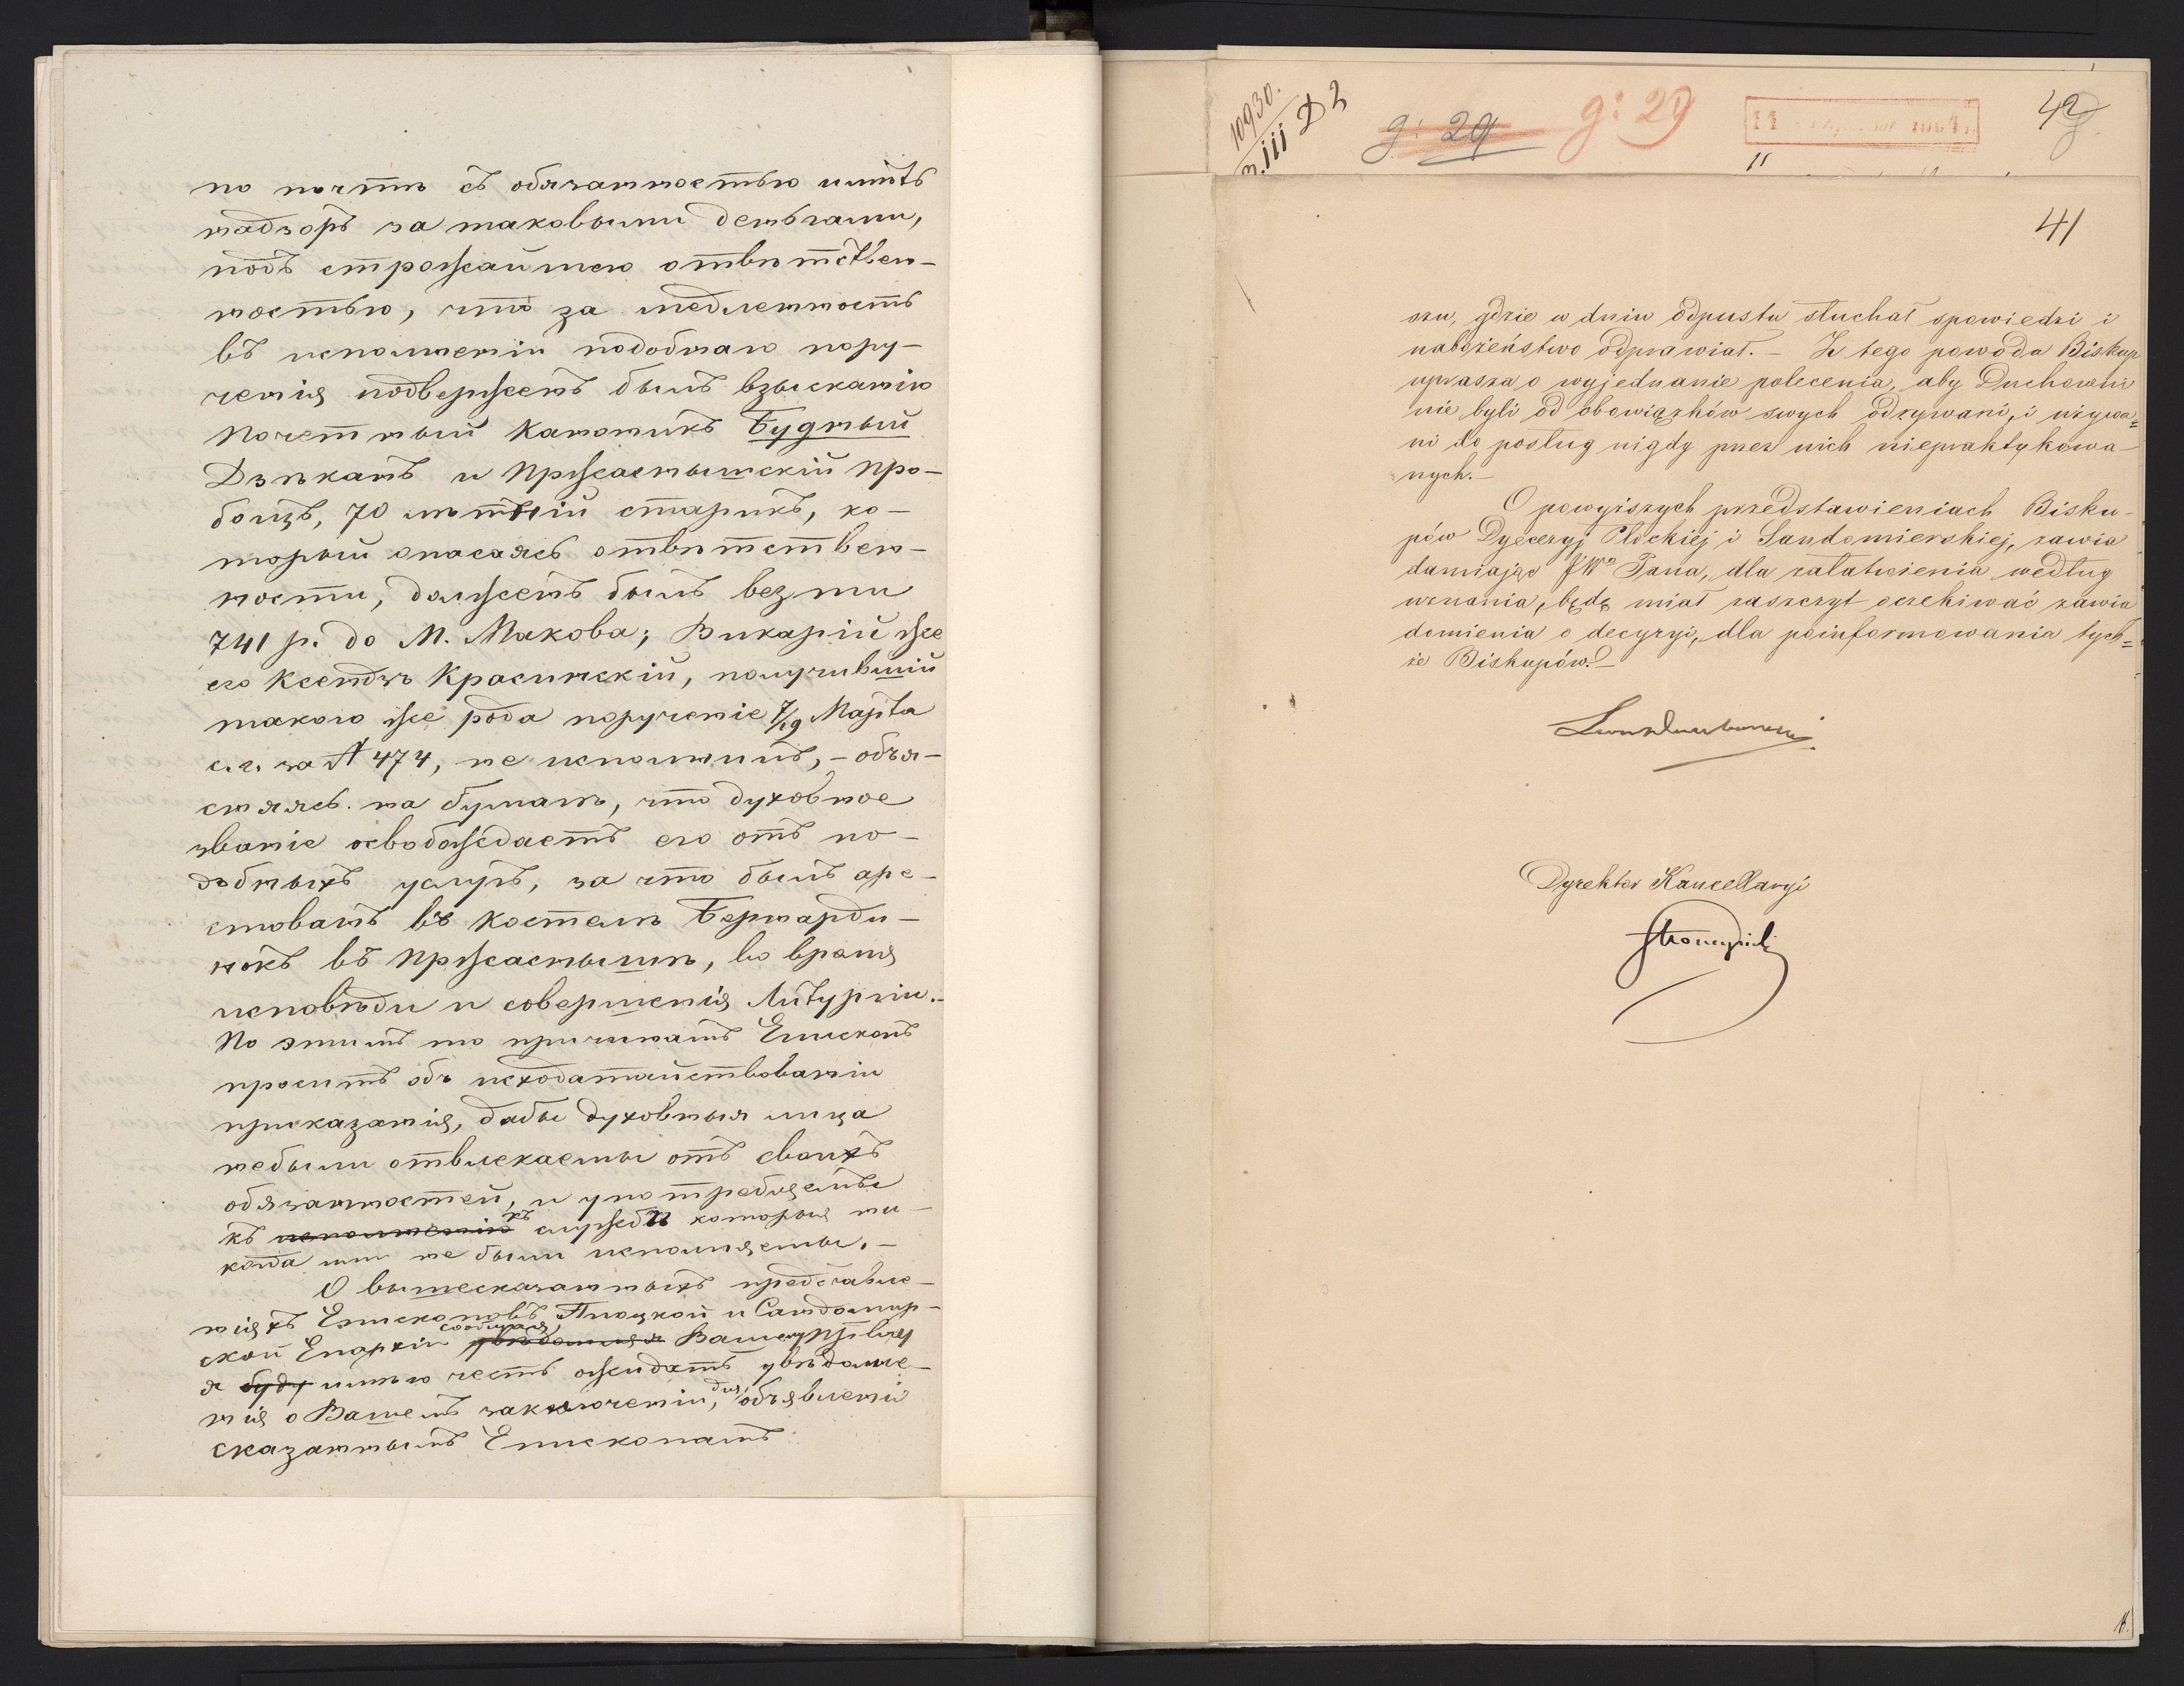 по почтѣ съ обязанностью имѣть
надзоръ за таковыми деньгами,
подъ строжайшею отвѣтствен-
ностью, что за медленность
въ исполненіи подобнаго пору-
ченія подверженъ былъ взысканію
Почетный Каноникъ Будный
Дѣканъ и Пржаснышскій про-
бощъ, 70 лѣтній старикъ, ко-
торый опасаясь отвѣтствен-
ности, долженъ былъ везти
741 р. до М. Макова; Викарій же
его Ксендзъ Красинскій, получившій
такого же рода порученіе 7/19 Марта
с. г. за № 474, не исполнилъ, – объя-
сняясь на бумагѣ, что духовное
званіе освобождаетъ его отъ по-
добныхъ услугъ, за что былъ аре-
стованъ въ костелѣ Бернарди-
нокъ въ Пржаснышѣ, во время
исповѣди и совершенія Литургіи.–
По этимъ то причинамъ Епископъ
проситъ объ исходатайствованіи
приказанія, дабы духовныя лица
небыли отвлекаемы отъ своихъ
обязанностей, и употребляемы
къ исполненію къ службѣ которыя ни-
когда ими не были исполняемы.–
О вышесказанныхъ представле-
ніяхъ Епископовъ Плоцкой и Сандомир-
сообщая
ской Епархіи увѣдомляя Вашему
я буду имѣю честь ожидать увѣдомле-
нія о Вашемъ заключеніи, для объявленія
сказаннымъ Епископамъ
10930.
D 2
g: 29 g: 29
42
41
szu, gdzie w dniu odpustu słuchał spowiedzi i
nabożeństwo odprawiał. – Z tego powodu Biskup
uprasza o wyjednanie polecenia, aby Duchowni
nie byli od obowiązków swych odrywani, i używa=
ni do posług nigdy przez nich niepraktykowa-
nych.–
O powyższych przedstawieniach Bisku-
pów Dyecezyj Płockiej i Sandomierskiej, zawia
damiając JWo Pana, dla załatwienia według
uznania, będę miał zaszczyt oczekiwać zawia
domienia o decyzyi, dla poinformowania tych=
że Biskupów.–
Dyrektor Kancellaryi